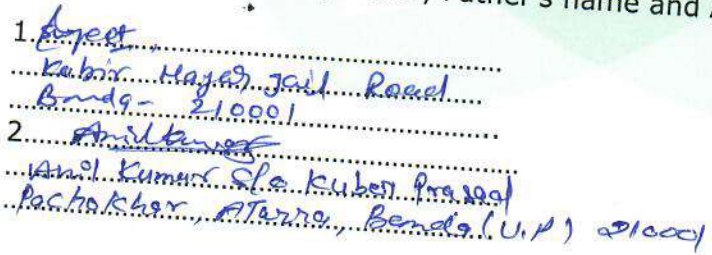 Father's name and
1. Ajeet
Kabir Nagar Jail Road
Banda- 210001
2 Anil Kumar
Anil Kumar S/o Kuber Prasad
Pachokhar, ATarra, Banda (U.P) 210001